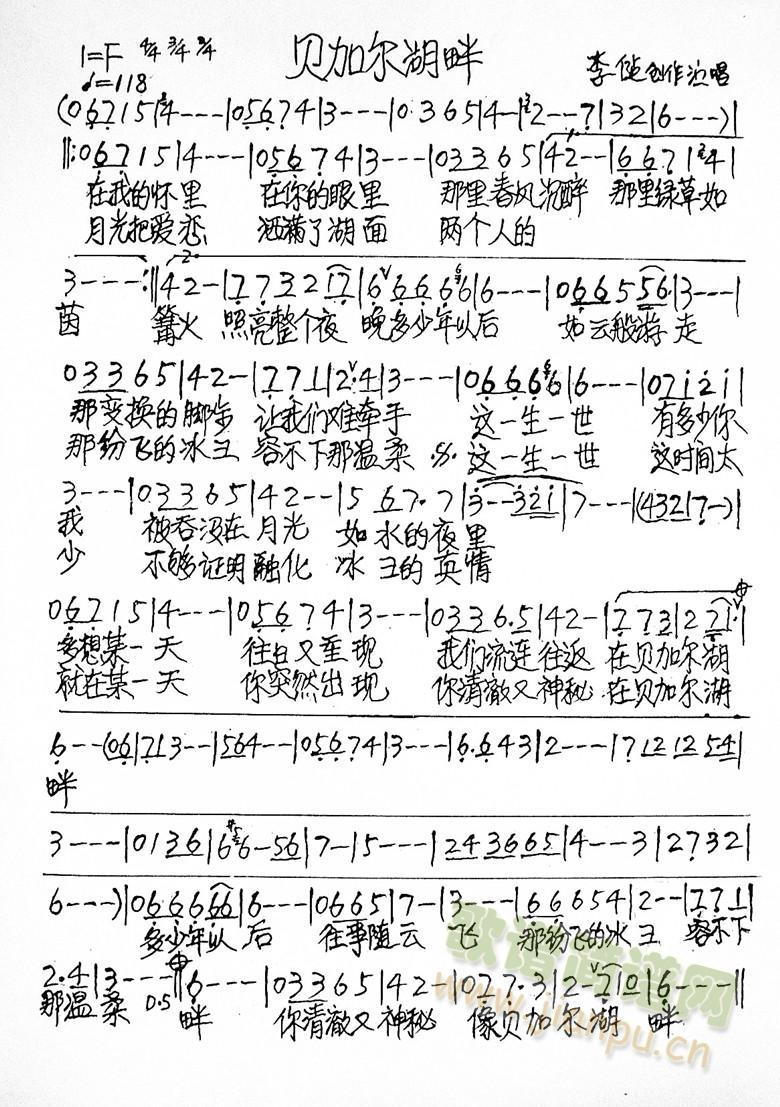 贝加尔湖畔
1=F 4/4 3/4 2/4
♩=118
李健创作演唱
(0 6 7 1 5 | 4 - - - | 0 5 6 7 4 | 3 - - - | 0 3 6 5 | 4 - | 2 - - 7 | 3 2 | 6 - - -) |
||: 0 6 7 1 5 | 4 - - - | 0 5 6 7 4 | 3 - - - | 0 3 3 6 5 | 4 2 - - | 6 6 7 | 2 4 |
在我的怀里 在你的眼里 那里春风沉醉 那里绿草如
月光把爱恋 洒满了湖面 两个人的
3 - - - :|| 4 2 - | 7 7 3 2 1 7 | 6 6 6 6 6 | 6 - - - | 0 6 6 5 5 6 | 3 - - - |
茵 篝火 照亮整个夜 晚多少年以后 如云般游走
0 3 3 6 5 | 4 2 - | 7 7 1 | 2 · 4 | 3 - - - | 0 6 6 6 6 | 6 - - - | 0 7 1 2 1 |
那变换的脚步 让我们难牵手 这一生一世 有多少你
那纷飞的冰玉 容不下那温柔 𝄋 这一生一世 这时间太
3 - - - | 0 3 3 6 5 | 4 2 - - | 5 6 7 · 7 | 3 - - 3 2 1 | 7 - - - | (4 3 2 | 7 -) |
我 被吞没在月光 如水的夜里
少 不够证明融化 冰玉的真情
0 6 7 1 5 | 4 - - - | 0 5 6 7 4 | 3 - - - | 0 3 3 6 · 5 | 4 2 - | 7 7 3 | 2 7 1 · |
多想某一天 往日又重现 我们流连往返 在贝加尔湖
就在某一天 你突然出现 你清澈又神秘 在贝加尔湖
6 - - (0 6 | 7 1 3 - - | 5 6 4 - - | 0 5 6 7 4 | 3 - - - | 6 · 6 4 3 | 2 - - - | 7 1 2 1 2 5 · 4 |
畔
3 - - - | 0 1 3 6 | 6 6 - 5 6 | 7 - | 5 - - - | 2 4 3 6 6 5 | 4 - - 3 | 2 7 3 2 |
6 - - -) | 0 6 6 6 6 6 | 6 - - - | 0 6 6 5 | 7 - | 3 - - - | 6 6 6 5 4 | 2 - - | 7 7 1 |
多少年以后 往事随云飞 那纷飞的冰玉 容不下
2 · 4 | 3 - - - || 6 - - - | 0 3 3 6 5 | 4 2 - | 0 7 7 · 3 | 2 - 7 1 0 | 6 - - - ||
那温柔 D.S 畔 你清澈又神秘 像贝加尔湖 畔
歌谱简谱网
www.jianpu.cn